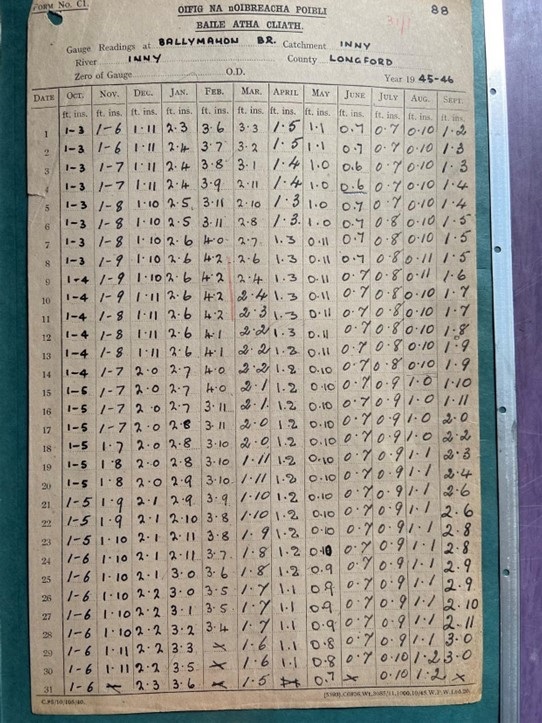 FORM NO. C1.
OIFIG NA nOIBREACHA POIBLI
BAILE ATHA CLIATH.
88
Gauge Readings at BALLYMAHON BR. Catchment INNY
River INNY County LONGFORD
Zero of Gauge O.D. Year 1945-46
DATE OCT. NOV. DEC. JAN. FEB. MAR. APRIL MAY JUNE JULY AUG. SEPT.
ft. ins. ft. ins. ft. ins. ft. ins. ft. ins. ft. ins. ft. ins. ft. ins. ft. ins. ft. ins. ft. ins. ft. ins.
1 1-3 1-6 1·11 2·3 3·6 3·3 1·5 1·1 0·7 0·7 0·10 1·2
2 1-3 1-6 1·11 2·4 3·7 3·2 1·5 1·1 0·7 0·7 0·10 1·3
3 1-3 1-7 1·11 2·4 3·8 3·1 1·4 1·0 0·6 0·7 0·10 1·3
4 1-3 1-7 1·11 2·4 3·9 2·11 1·4 1·0 0·6 0·7 0·10 1·4
5 1-3 1-8 1·10 2·5 3·11 2·10 1·3 1·0 0·7 0·7 0·10 1·4
6 1-3 1-8 1·10 2·5 3·11 2·8 1·3 1·0 0·7 0·8 0·10 1·5
7 1-3 1-8 1·10 2·6 4·0 2·7 1·3 0·11 0·7 0·8 0·10 1·5
8 1-3 1-9 1·10 2·6 4·2 2·6 1·3 0·11 0·7 0·8 0·11 1·5
9 1-4 1-9 1·10 2·6 4·2 2·4 1·3 0·11 0·7 0·8 0·11 1·6
10 1-4 1-9 1·11 2·6 4·2 2·4 1·3 0·11 0·7 0·8 0·10 1·7
11 1-4 1-8 1·11 2·6 4·2 2·3 1·3 0·11 0·7 0·8 0·10 1·7
12 1-4 1-8 1·11 2·6 4·1 2·2 1·3 0·11 0·7 0·8 0·10 1·8
13 1-4 1-8 1·11 2·6 4·1 2·2 1·2 0·11 0·7 0·8 0·10 1·9
14 1-4 1-7 2·0 2·7 4·0 2·2 1·2 0·10 0·7 0·8 0·10 1·9
15 1-5 1-7 2·0 2·7 4·0 2·1 1·2 0·10 0·7 0·9 1·0 1·10
16 1-5 1-7 2·0 2·7 3·11 2·1 1·2 0·10 0·7 0·9 1·0 1·11
17 1-5 1-7 2·0 2·8 3·11 2·0 1·2 0·10 0·7 0·9 1·0 2·0
18 1-5 1·7 2·0 2·8 3·10 2·0 1·2 0·10 0·7 0·9 1·0 2·2
19 1-5 1·8 2·0 2·8 3·10 1·11 1·2 0·10 0·7 0·9 1·1 2·3
20 1-5 1·8 2·0 2·9 3·10 1·11 1·2 0·10 0·7 0·9 1·1 2·4
21 1-5 1·9 2·1 2·9 3·9 1·10 1·2 0·10 0·7 0·9 1·1 2·6
22 1-5 1·9 2·1 2·10 3·8 1·10 1·2 0·10 0·7 0·9 1·1 2·6
23 1-5 1·10 2·1 2·11 3·8 1·9 1·2 0·10 0·7 0·9 1·1 2·8
24 1-6 1·10 2·1 2·11 3·7 1·8 1·2 0·10 0·7 0·9 1·1 2·8
25 1-6 1·10 2·1 3·0 3·6 1·8 1·2 0·9 0·7 0·9 1·1 2·9
26 1-6 1·10 2·2 3·0 3·5 1·7 1·1 0·9 0·7 0·9 1·1 2·9
27 1-6 1·10 2·2 3·1 3·5 1·7 1·1 0·9 0·7 0·9 1·1 2·10
28 1-6 1·10 2·2 3·2 3·4 1·7 1·1 0·9 0·7 0·9 1·1 2·11
29 1-6 1·11 2·2 3·3 x 1·6 1·1 0·8 0·7 0·9 1·1 3·0
30 1-6 1·11 2·2 3·5 x 1·6 1·1 0·8 0·7 0·10 1·2 3·0
31 1-6 x 2·3 3·6 x 1·5 x 0·7 x 0·10 1·2 x